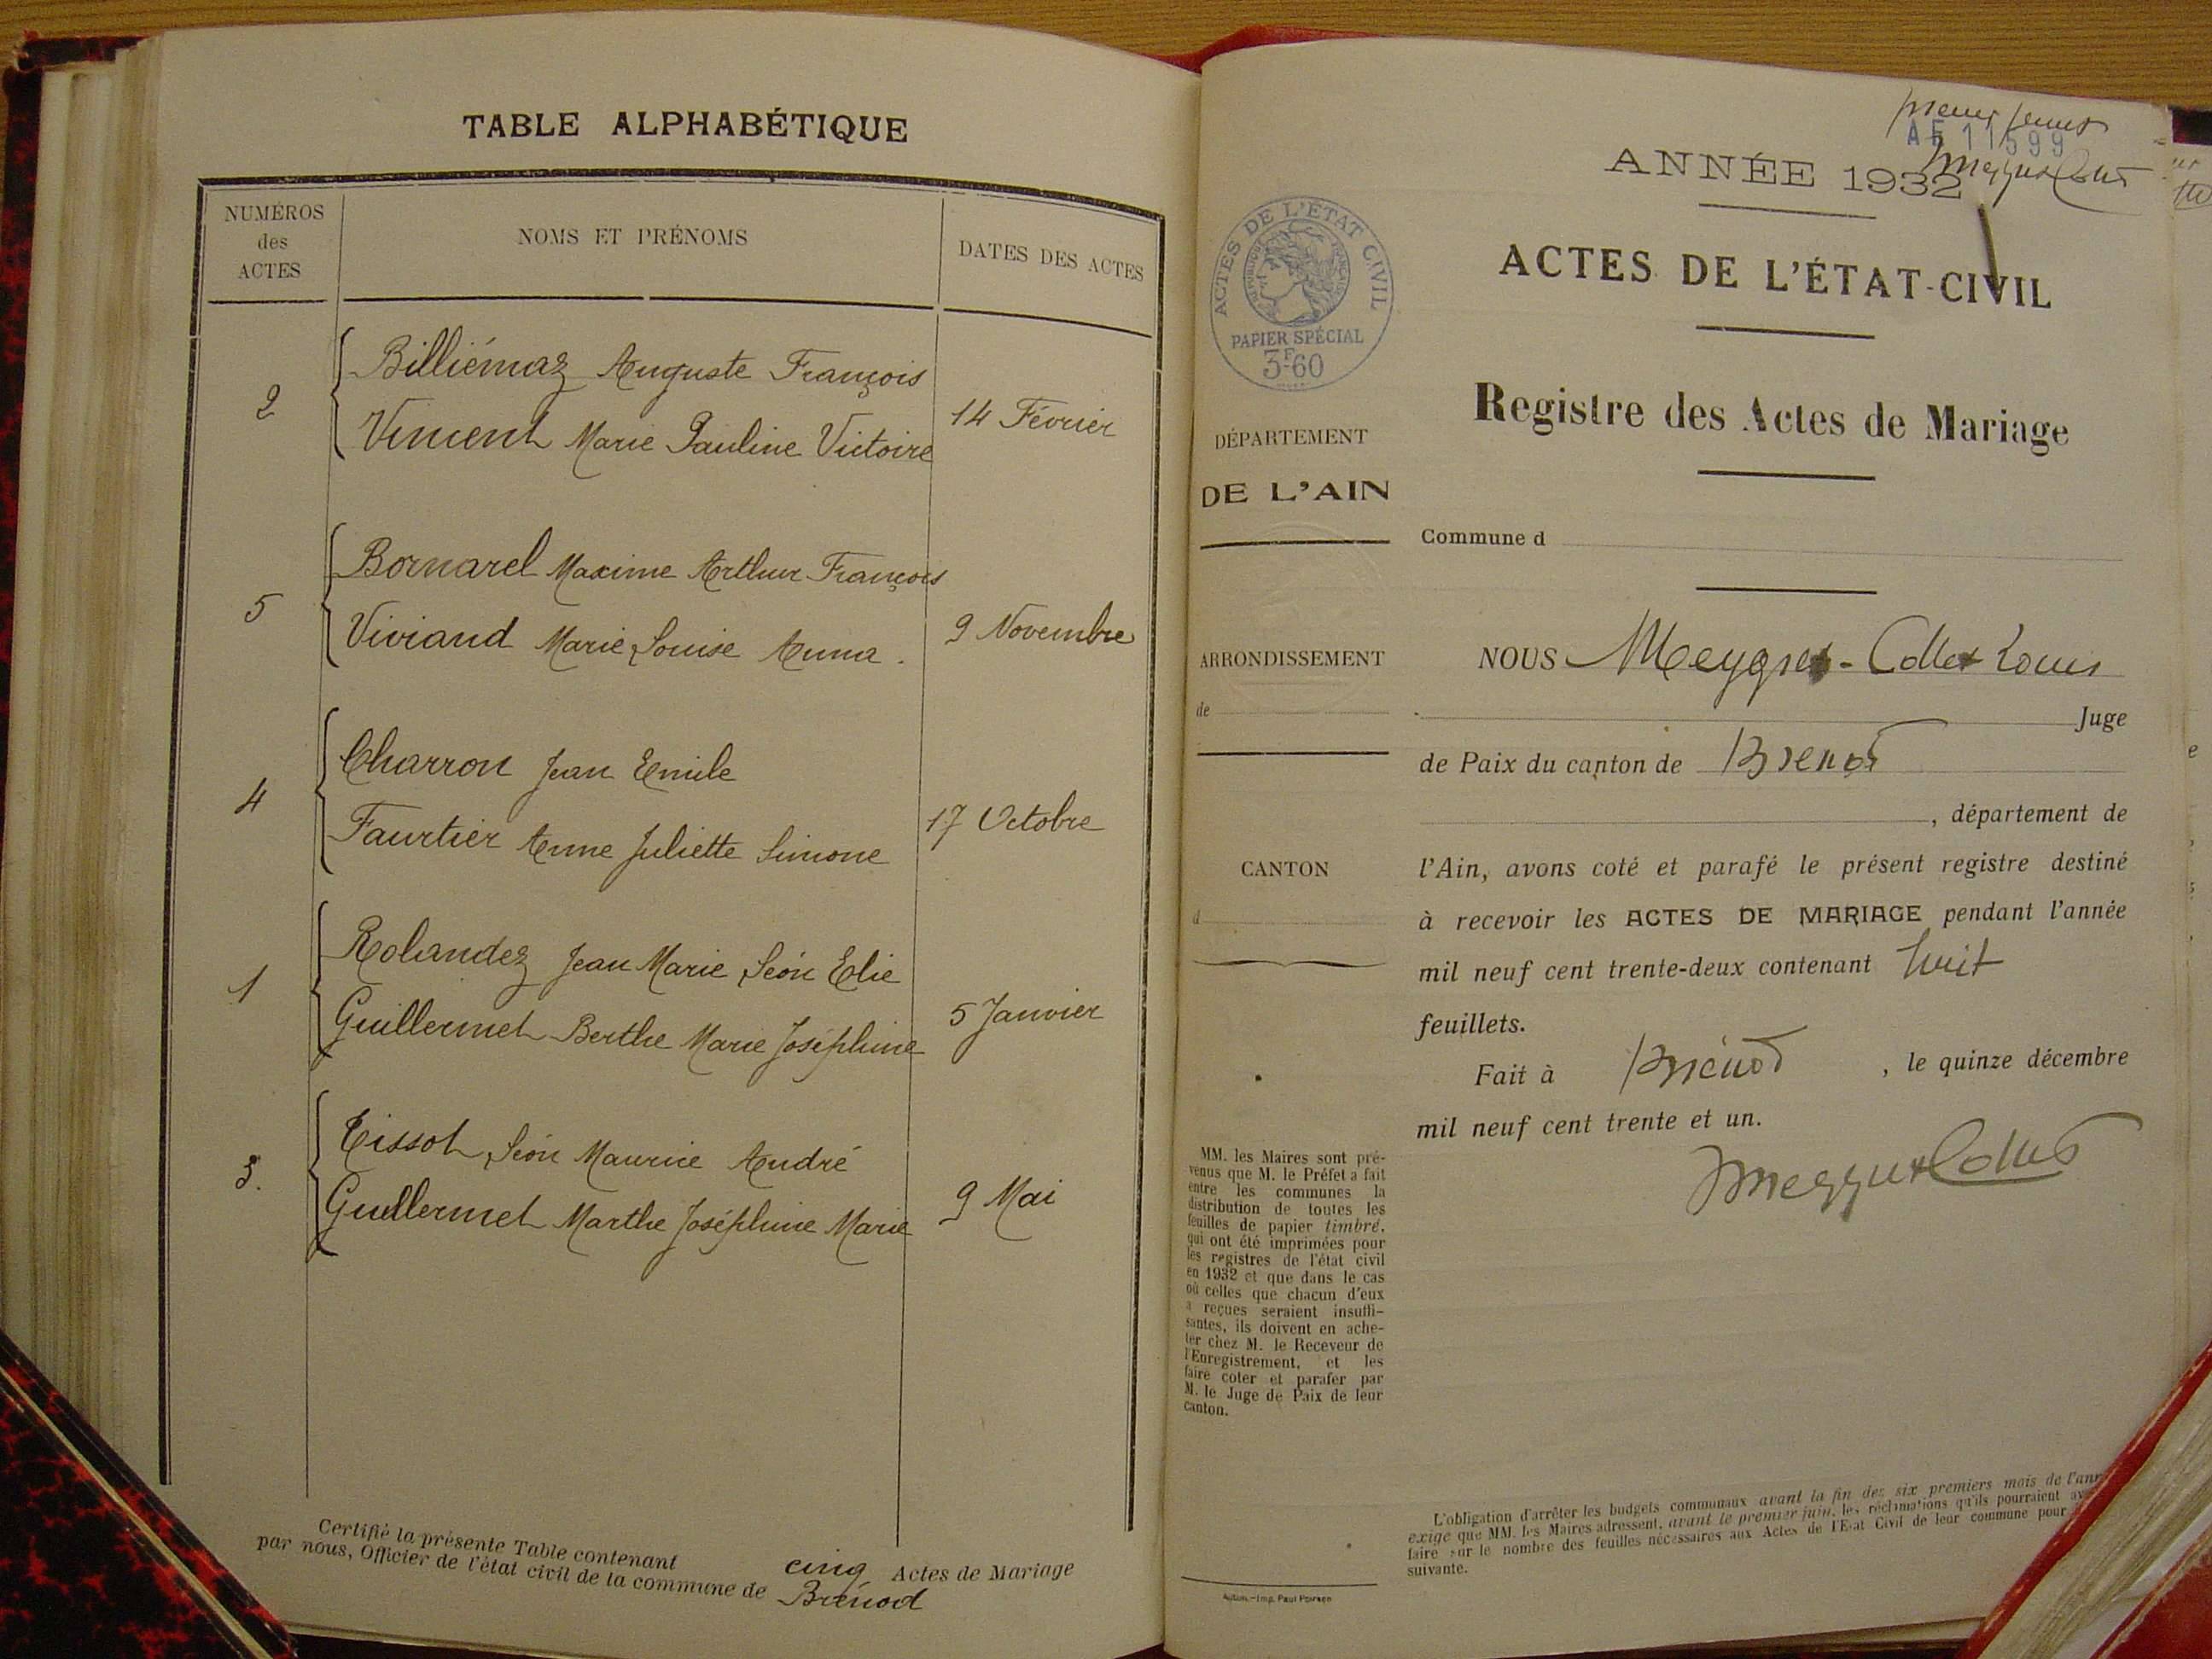 TABLE ALPHABÉTIQUE
NUMÉROS
des
ACTES
NOMS ET PRÉNOMS
DATES DES ACTES
2
Billiémaz Auguste François
Vincent Marie Pauline Victoire
14 Février
5
Bornarel Maxime Arthur François
Viviand Marie Louise Anna.
9 Novembre
4
Charron Jean Emile
Faurtier Anne Juliette Simone
17 Octobre
1
Rolandez Jean Marie Léon Elie
Guillermet Berthe Marie Joséphine
5 Janvier
3.
Tissot Léon Maurice André
Guillermet Marthe Joséphine Marie
9 Mai
Certifié la présente Table contenant cinq Actes de Mariage
par nous, Officier de l'état civil de la commune de Brénod
AF 11599
ANNÉE 1932
ACTES DE L'ÉTAT CIVIL
RÉPUBLIQUE FRANÇAISE
PAPIER SPÉCIAL
3F60
ACTES DE L'ÉTAT-CIVIL
Registre des Actes de Mariage
DÉPARTEMENT
DE L'AIN
Commune d
ARRONDISSEMENT
de
CANTON
d
NOUS Meygret-Collet Louis
Juge
de Paix du canton de Brenod
, département de
l'Ain, avons coté et parafé le présent registre destiné
à recevoir les ACTES DE MARIAGE pendant l'année
mil neuf cent trente-deux contenant huit
feuillets.
Fait à Brénod , le quinze décembre
mil neuf cent trente et un.
MeygretCollet
MM. les Maires sont pré-
venus que M. le Préfet a fait
entre les communes la
distribution de toutes les
feuilles de papier timbré,
qui ont été imprimées pour
les registres de l'état civil
en 1932 et que dans le cas
où celles que chacun d'eux
a reçues seraient insuffi-
santes, ils doivent en ache-
ter chez M. le Receveur de
l'Enregistrement, et les
faire coter et parafer par
M. le Juge de Paix de leur
canton.
L'obligation d'arrêter les budgets communaux avant la fin des six premiers mois de l'ann
exige que MM. les Maires adressent, avant le premier juin, les réclamations qu'ils pourraient av
faire sur le nombre des feuilles nécessaires aux Actes de l'Etat Civil de leur commune pour
suivante.
Imp. Paul